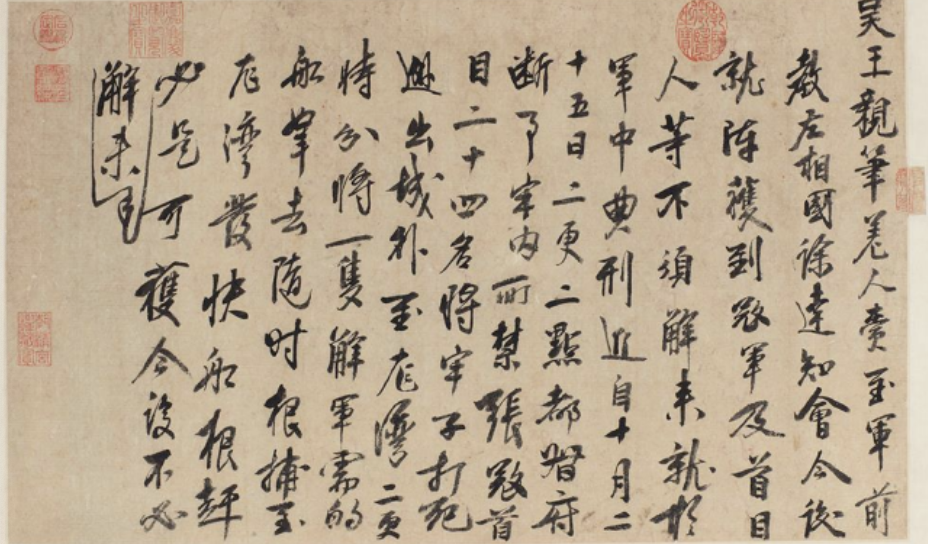 吳王親筆差人賫至軍前
教左相國徐達知會今後
就陣獲到寇軍及首目
人等不須解来就於
軍中典刑近自十月二
十五日二更二點都督府
斷了牢內所禁張寇首
目二十四名將牢子打死
越出城外至龙灣二更
時分將一隻解軍需的
船拏去随时根捕至
龙灣發快船根赶
必是可獲今後不必
解来